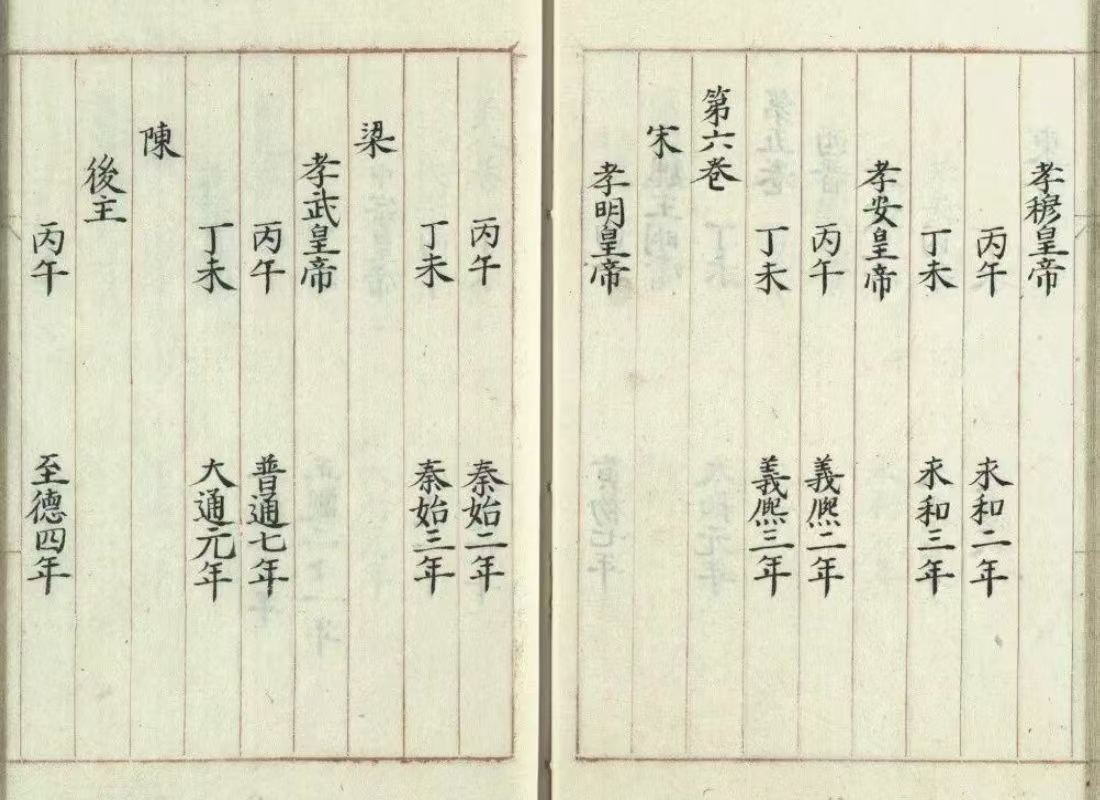 孝穆皇帝
丙午 永和二年
丁未 永和三年
孝安皇帝
丙午 義熙二年
丁未 義熙三年
第六卷
宋
孝明皇帝
丙午 泰始二年
丁未 泰始三年
梁
孝武皇帝
丙午 普通七年
丁未 大通元年
陳
後主
丙午 至德四年